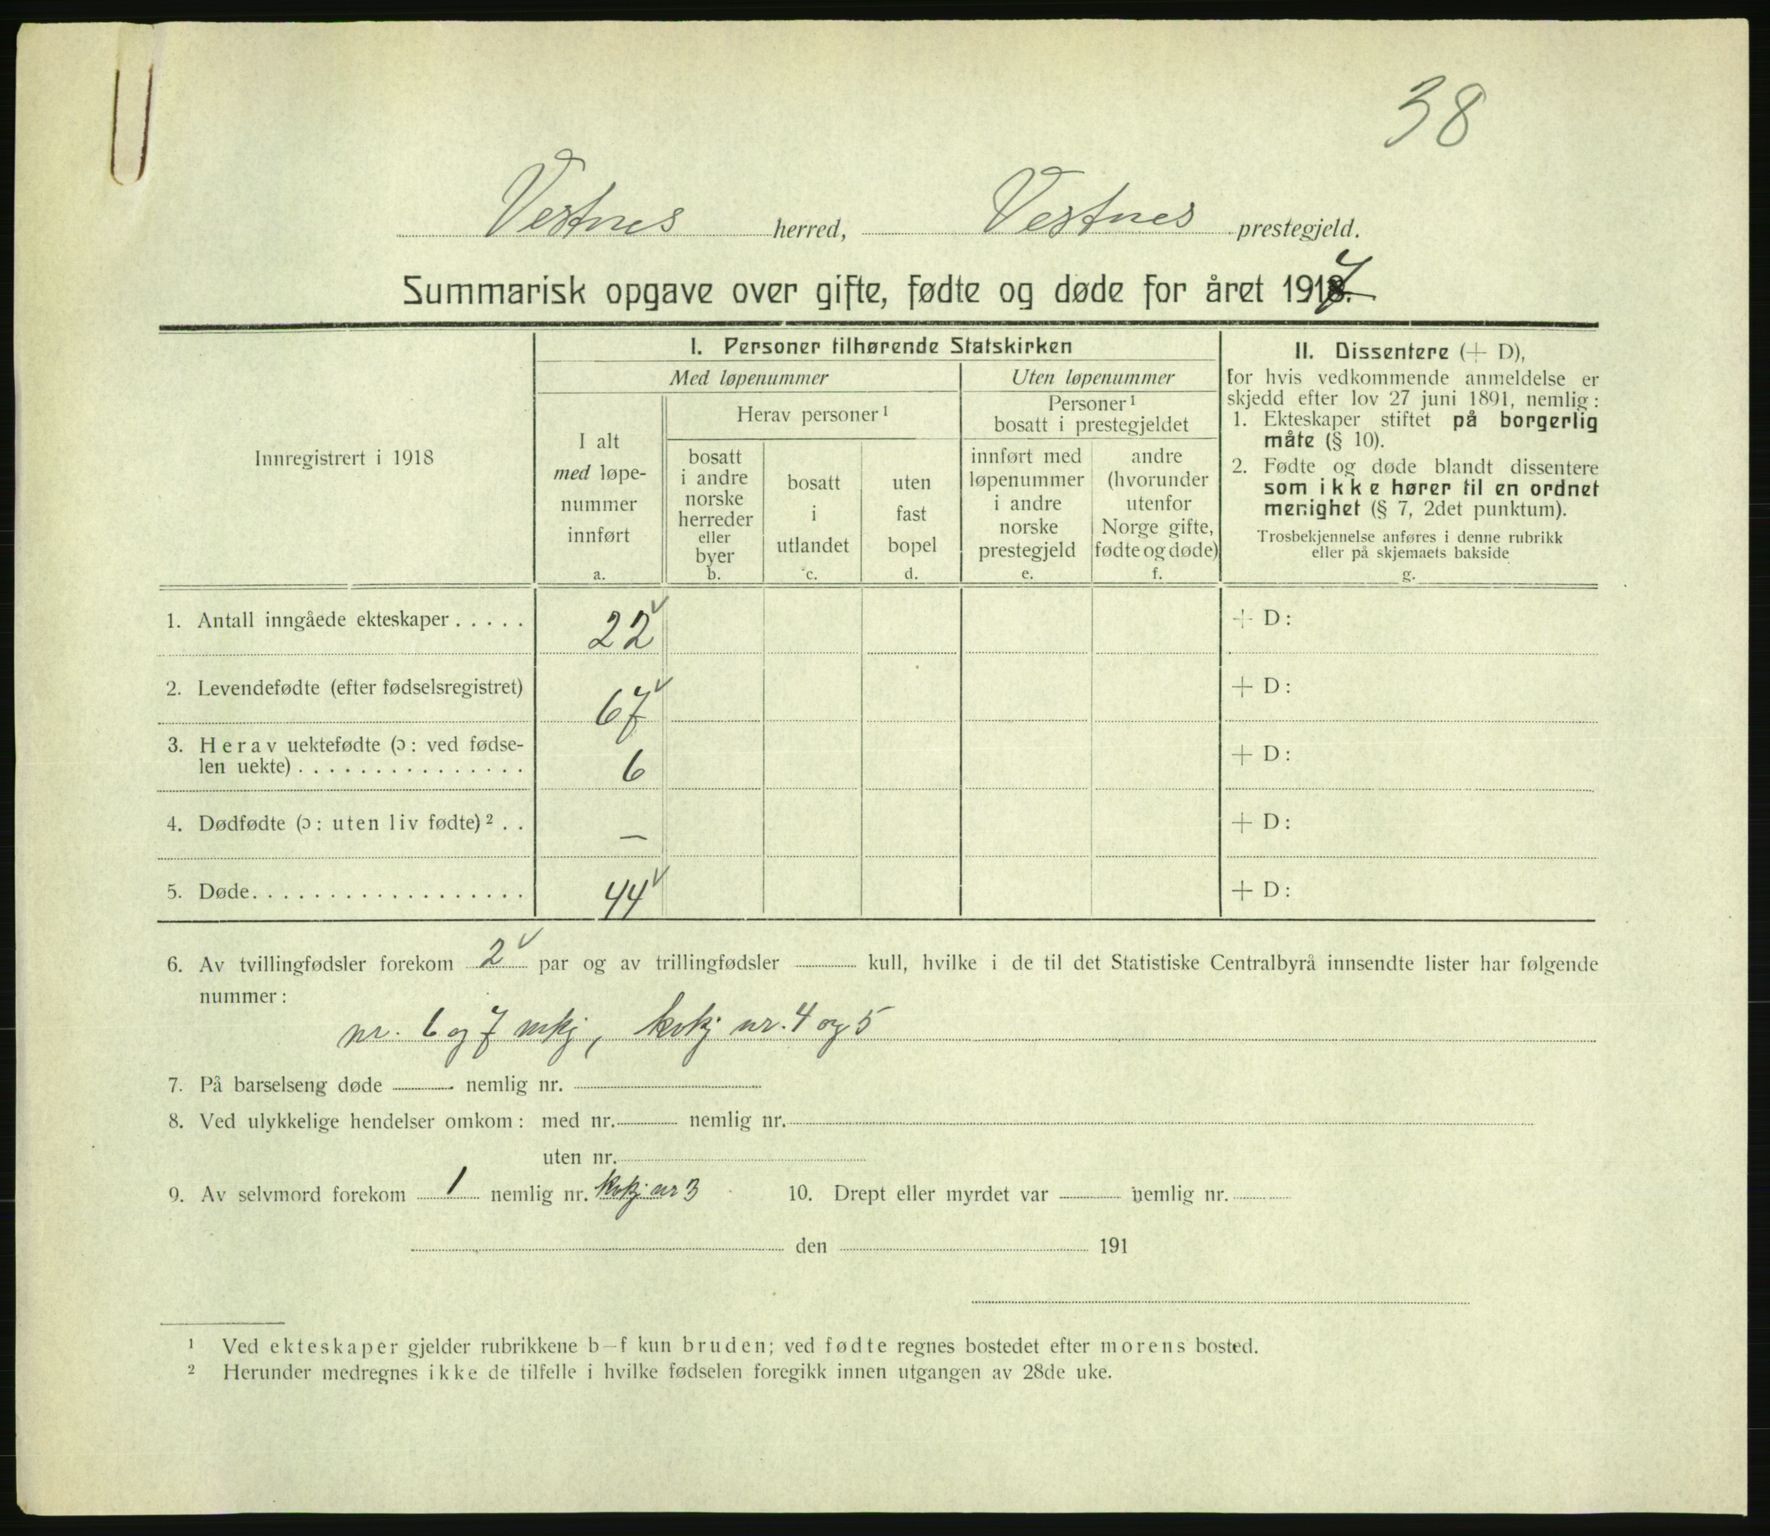 38
Vestnes herred, Vestnes prestegjeld.
Summarisk opgave over gifte, fødte og døde for året 1917.
Innregistrert i 1918
I. Personer tilhørende Statskirken
Med løpenummer
Uten løpenummer
I alt
med løpe-
nummer
innført
a.
Herav personer¹
bosatt
i andre
norske
herreder
eller
byer
b.
bosatt
i
utlandet
c.
uten
fast
bopel
d.
Personer¹
bosatt i prestegjeldet
innført med
løpenummer
i andre
norske
prestegjeld
e.
andre
(hvorunder
utenfor
Norge gifte,
fødte og døde)
f.
II. Dissentere (+ D),
for hvis vedkommende anmeldelse er
skjedd efter lov 27 juni 1891, nemlig:
1. Ekteskaper stiftet på borgerlig
måte (§ 10).
2. Fødte og døde blandt dissentere
som ikke hører til en ordnet
menighet (§ 7, 2det punktum).
Trosbekjennelse anføres i denne rubrikk
eller på skjemaets bakside
g.
1. Antall inngåede ekteskaper . . . . . 22 ✓ + D:
2. Levendefødte (efter fødselsregistret) 67 ✓ + D:
3. Herav uektefødte (ɔ: ved fødse-
len uekte) . . . . . . . . . . . . . . . 6 + D:
4. Dødfødte (ɔ: uten liv fødte)² . . — + D:
5. Døde. . . . . . . . . . . . . . . . . . 44 ✓ + D:
6. Av tvillingfødsler forekom 2 ✓ par og av trillingfødsler ........ kull, hvilke i de til det Statistiske Centralbyrå innsendte lister har følgende
nummer:
nr. 6 og 7 mkj, kvkj nr. 4 og 5
7. På barselseng døde ........ nemlig nr. ........
8. Ved ulykkelige hendelser omkom: med nr. ........ nemlig nr. ........
uten nr. ........
9. Av selvmord forekom 1 nemlig nr. kvkj nr 3 10. Drept eller myrdet var ........ nemlig nr. ........
........ den ........ 191
¹ Ved ekteskaper gjelder rubrikkene b—f kun bruden; ved fødte regnes bostedet efter morens bosted.
² Herunder medregnes ikke de tilfelle i hvilke fødselen foregikk innen utgangen av 28de uke.